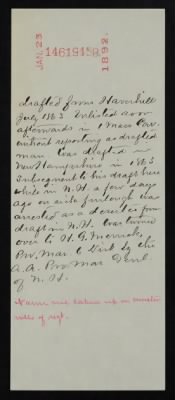 JAN. 23
1461945
1892.
drafted from Haverhill
July 1863. Enlisted soon
afterwards in 1 Mass Cav.
without reporting as drafted
man. Was drafted in
New Hampshire in 1863
subsequent to his draft here
while in N.H. a few days
ago on sick furlough was
arrested as a deserter from
draft in N.H. Was turned
over to H. G.
Pro. Mar. 6 Dist by the
A.A. Pro. Mar. Genl.
of N.H.
Name not taken up on muster
rolls of regt.